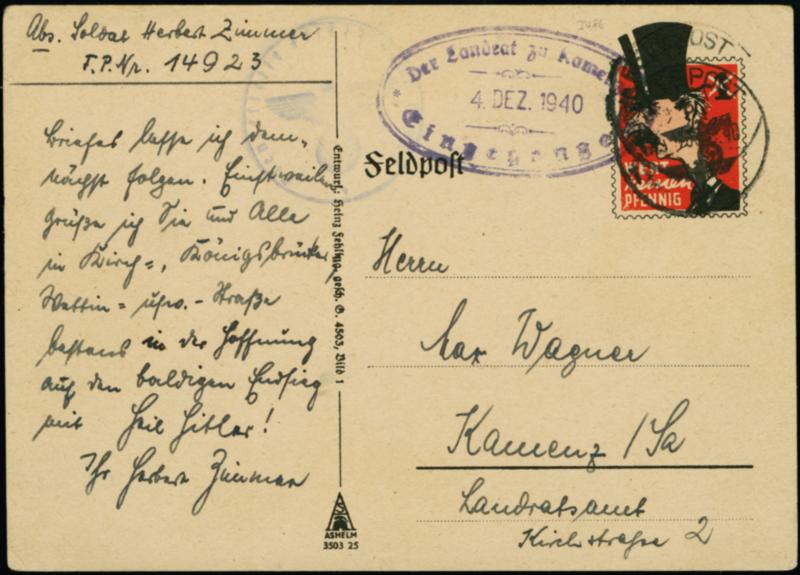 Abs. Soldat Herbert Zimmer
F.P.Nr. 14923
Briefes lasse ich dem-
nächst folgen. Einstweilen
grüße ich Sie und Alle
in Kirch-, Königsbrücker
Wettin- usw. - Straße
bestens in der Hoffnung
auf den baldigen Endsieg
mit Heil Hitler!
Ihr Herbert Zimmer
Entwurf: Heinz Fehling, gesch. G. 4503, Bild 1
ASHELM
3503 25
Der Landrat zu Kamenz
4. DEZ. 1940
Eingegangen
Feldpost
PFENNIG
Herrn
Max Wagner
Kamenz /Sa
Landratsamt
Kirchstraße 2